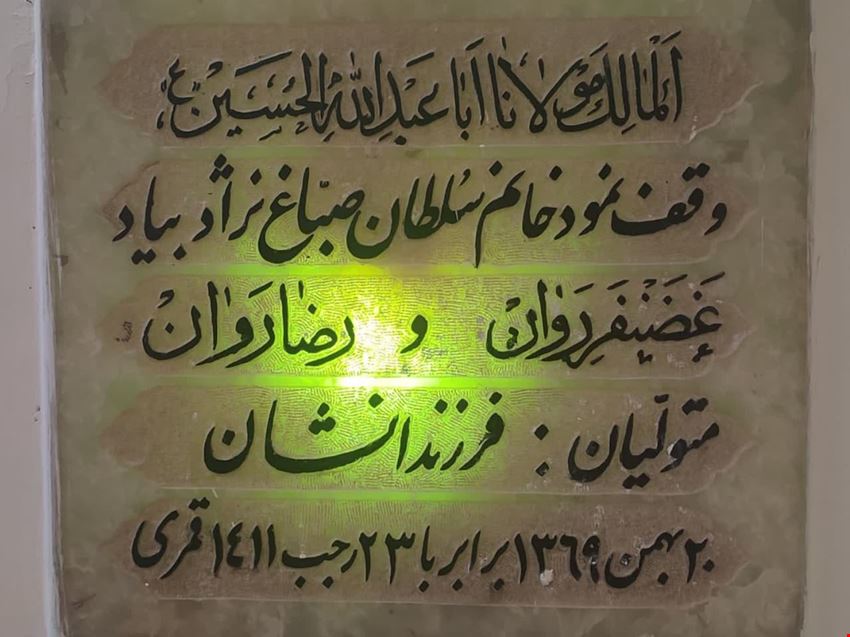 اَلْمالِك مَوْلانا اَبا عَبدِ اللّٰهِ الحُسَین ع
وقف نمود خانم سُلطان صبّاغ نژاد بیاد
غَضَنْفَر رَوان و رضا رَوان
متولّیان : فرزندانشان
۲۰ بهمن ۱۳۶۹ برابر با ۲۳ رجب ۱۴۱۱ قمری